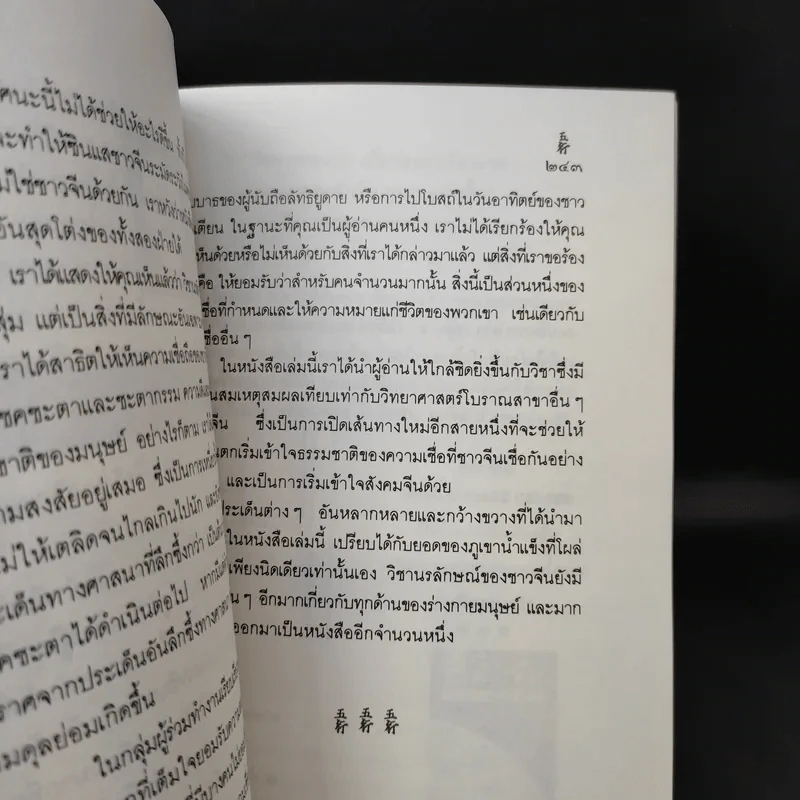 คนะนี้ไม่ได้ช่วยให้อะไรดีขึ้น
ะทำให้ซินแสชาวจีนระมัดระวัง
ม่ใช่ชาวจีนด้วยกัน เราหวังว่า
อันสุดโต่งของทั้งสองฝ่ายให้
เราได้แสดงให้คุณเห็นแล้วว่า
สุ่ม แต่เป็นสิ่งที่มีลักษณะ
ราได้สาธิตให้เห็นความเชื่อถือของ
ชคชะตาและชะตากรรม
ชาติของมนุษย์ อย่างไรก็ตาม
ามสงสัยอยู่เสมอ ซึ่งเป็นการ
ม่ให้เตลิดจนไกลเกินไปนัก และ
ะเด็นทางศาสนาที่ลึกซึ้งกว่า
คชะตาได้ดำเนินต่อไป
ราศจากประเด็นอันลึกซึ้งทาง
มดุลย่อมเกิดขึ้น
ในกลุ่มผู้ร่วมทำงาน
ที่เต็มใจยอมรับ
五行
๒๔๓
บบาธของผู้นับถือลัทธิยูดาย หรือการไปโบสถ์ในวันอาทิตย์ของชาว
เตียน ในฐานะที่คุณเป็นผู้อ่านคนหนึ่ง เราไม่ได้เรียกร้องให้คุณ
ห็นด้วยหรือไม่เห็นด้วยกับสิ่งที่เราได้กล่าวมาแล้ว แต่สิ่งที่เราขอร้อง
คือ ให้ยอมรับว่าสำหรับคนจำนวนมากนั้น สิ่งนี้เป็นส่วนหนึ่งของ
ชื่อที่กำหนดและให้ความหมายแก่ชีวิตของพวกเขา เช่นเดียวกับ
ชื่ออื่น ๆ
ในหนังสือเล่มนี้เราได้นำผู้อ่านให้ใกล้ชิดยิ่งขึ้นกับวิชาซึ่งมี
นสมเหตุสมผลเทียบเท่ากับวิทยาศาสตร์โบราณสาขาอื่น ๆ
จีน ซึ่งเป็นการเปิดเส้นทางใหม่อีกสายหนึ่งที่จะช่วยให้
นตกเริ่มเข้าใจธรรมชาติของความเชื่อที่ชาวจีนเชื่อกันอย่าง
และเป็นการเริ่มเข้าใจสังคมจีนด้วย
ประเด็นต่าง ๆ อันหลากหลายและกว้างขวางที่ได้นำมา
ในหนังสือเล่มนี้ เปรียบได้กับยอดของภูเขาน้ำแข็งที่โผล่
เพียงนิดเดียวเท่านั้นเอง วิชานรลักษณ์ของชาวจีนยังมี
น ๆ อีกมากเกี่ยวกับทุกด้านของร่างกายมนุษย์ และมาก
ออกมาเป็นหนังสืออีกจำนวนหนึ่ง
五行 五行 五行